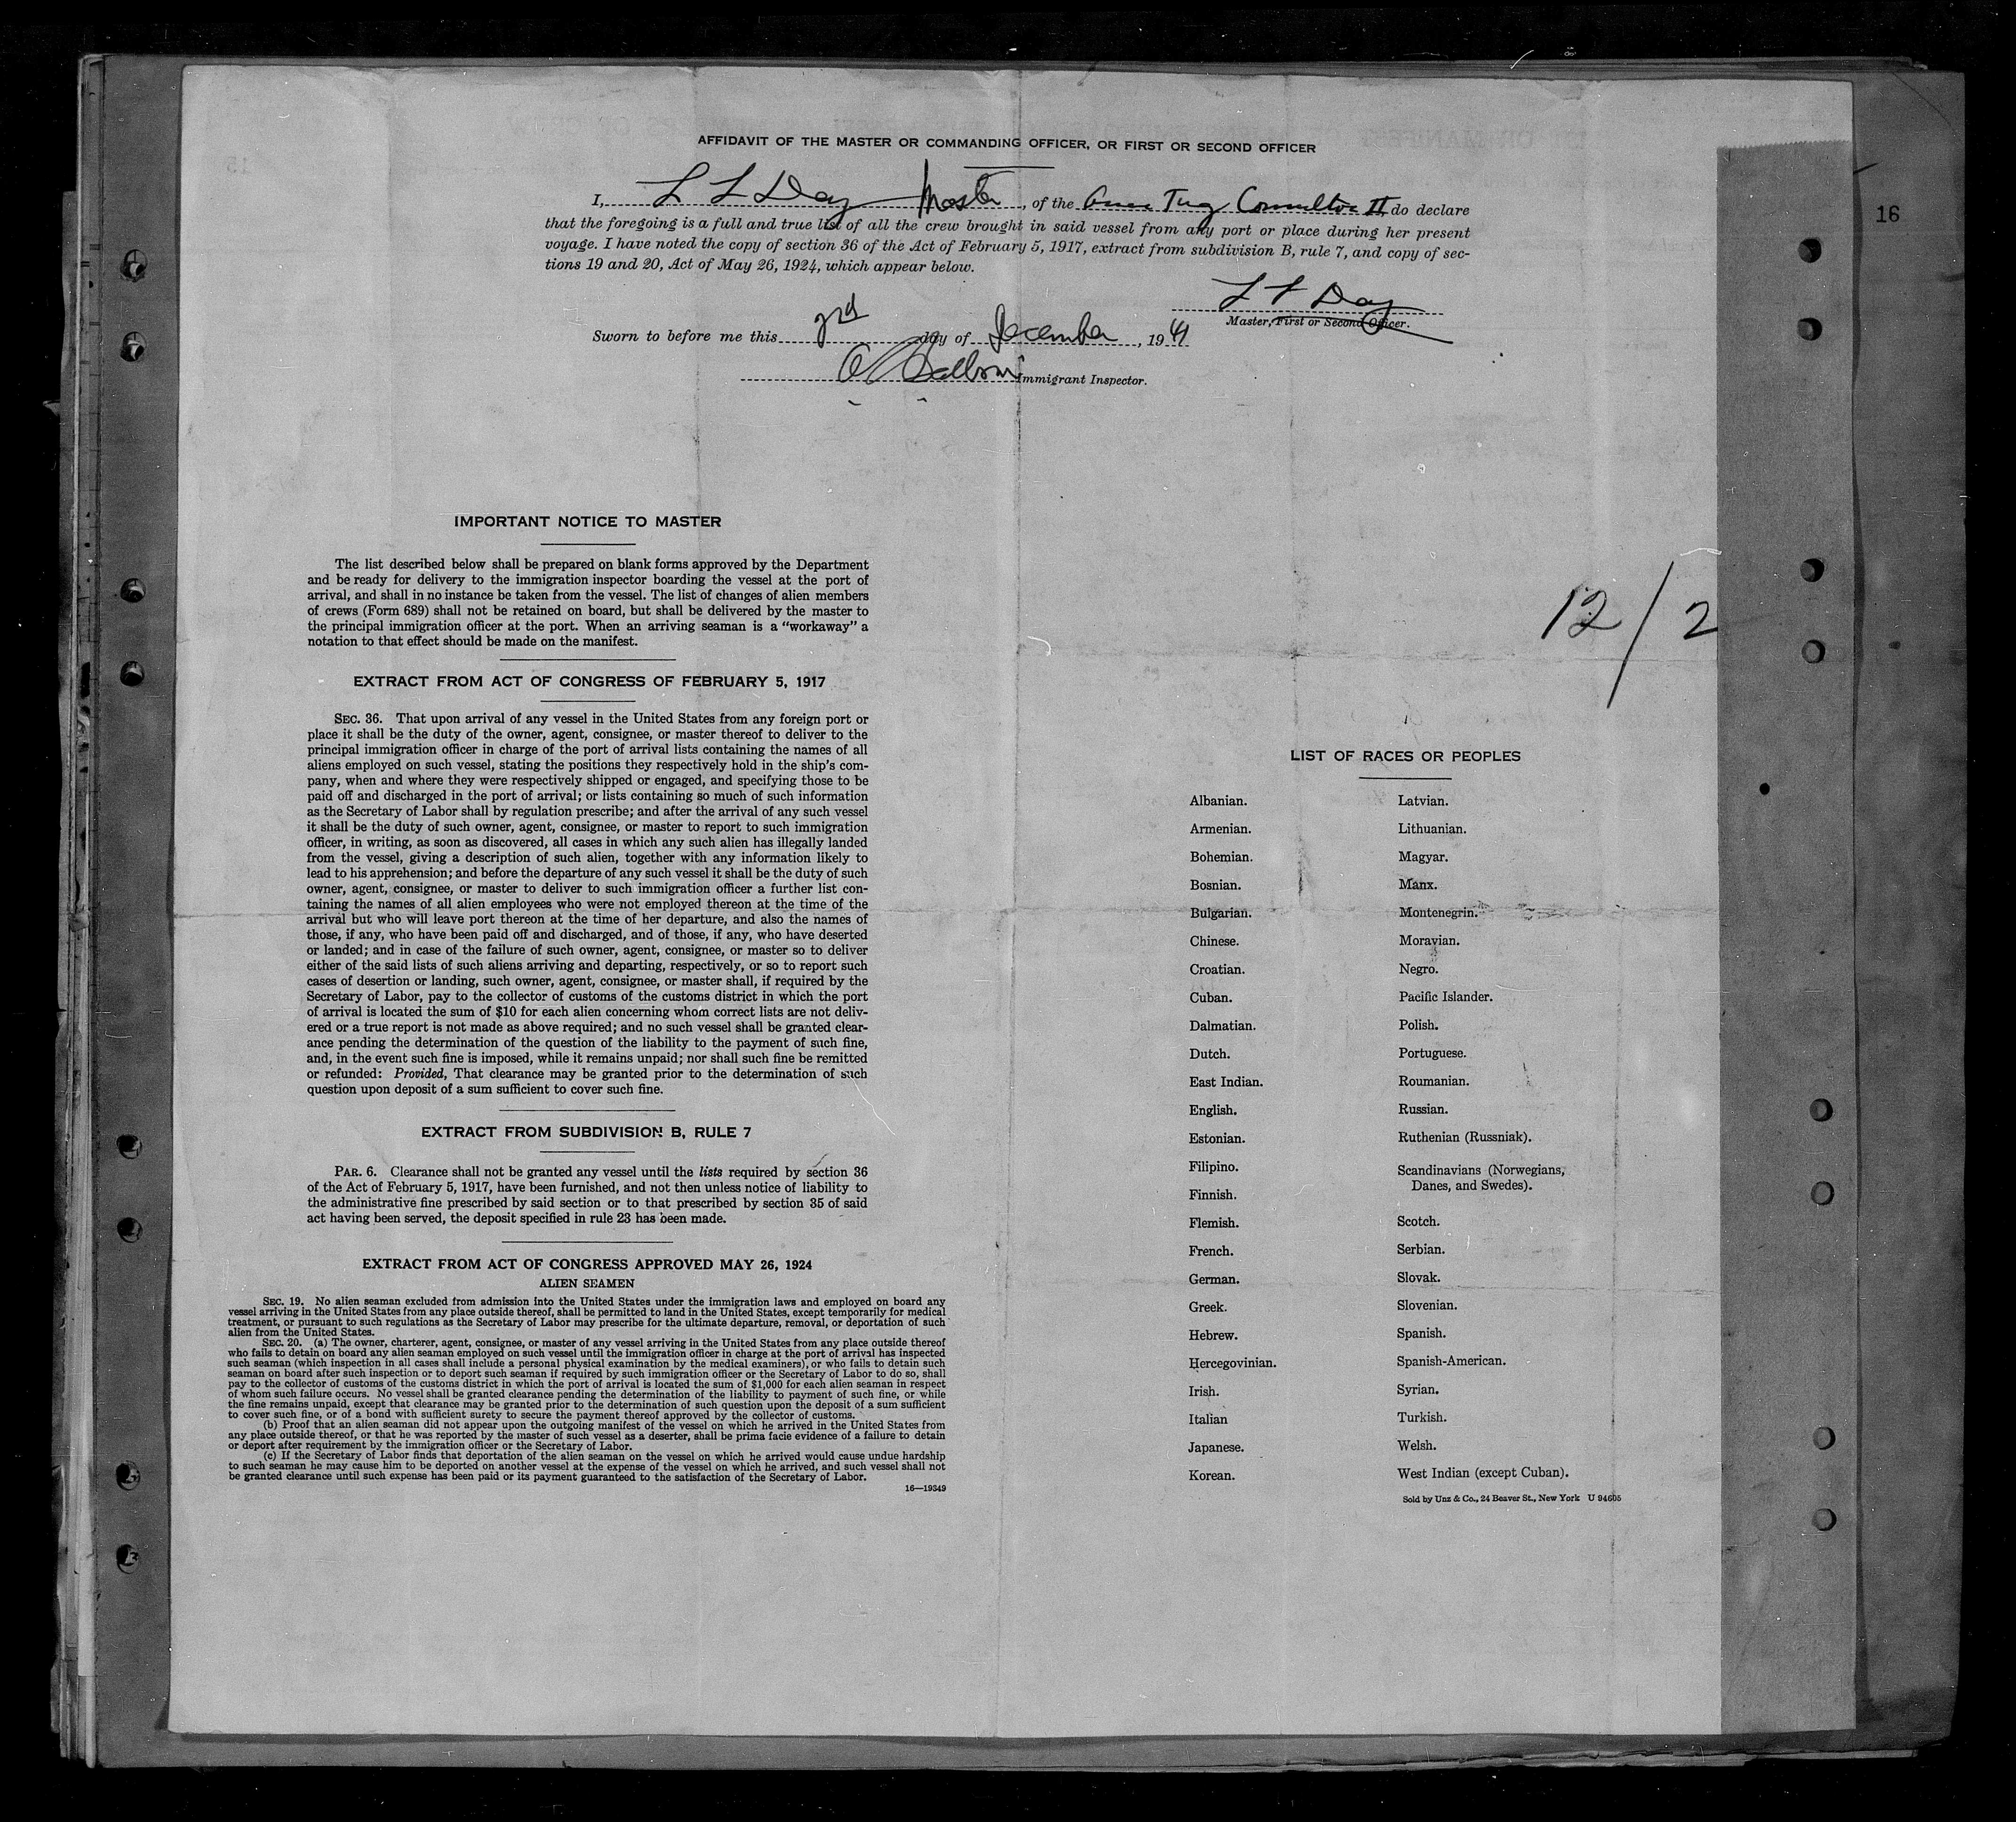 AFFIDAVIT OF THE MASTER OR COMMANDING OFFICER, OR FIRST OR SECOND OFFICER
I, L L Day Master, of the Tug II, do declare
that the foregoing is a full and true list of all the crew brought in said vessel from any port or place during her present
voyage. I have noted the copy of section 36 of the Act of February 5, 1917, extract from subdivision B, rule 7, and copy of sec-
tions 19 and 20, Act of May 26, 1924, which appear below.
L L Day
Master, First or Second Officer.
Sworn to before me this day of December, 1941
Immigrant Inspector.
16
12/2
IMPORTANT NOTICE TO MASTER
The list described below shall be prepared on blank forms approved by the Department
and be ready for delivery to the immigration inspector boarding the vessel at the port of
arrival, and shall in no instance be taken from the vessel. The list of changes of alien members
of crews (Form 689) shall not be retained on board, but shall be delivered by the master to
the principal immigration officer at the port. When an arriving seaman is a “workaway” a
notation to that effect should be made on the manifest.
EXTRACT FROM ACT OF CONGRESS OF FEBRUARY 5, 1917
SEC. 36. That upon arrival of any vessel in the United States from any foreign port or
place it shall be the duty of the owner, agent, consignee, or master thereof to deliver to the
principal immigration officer in charge of the port of arrival lists containing the names of all
aliens employed on such vessel, stating the positions they respectively hold in the ship's com-
pany, when and where they were respectively shipped or engaged, and specifying those to be
paid off and discharged in the port of arrival; or lists containing so much of such information
as the Secretary of Labor shall by regulation prescribe; and after the arrival of any such vessel
it shall be the duty of such owner, agent, consignee, or master to report to such immigration
officer, in writing, as soon as discovered, all cases in which any such alien has illegally landed
from the vessel, giving a description of such alien, together with any information likely to
lead to his apprehension; and before the departure of any such vessel it shall be the duty of such
owner, agent, consignee, or master to deliver to such immigration officer a further list con-
taining the names of all alien employees who were not employed thereon at the time of the
arrival but who will leave port thereon at the time of her departure, and also the names of
those, if any, who have been paid off and discharged, and of those, if any, who have deserted
or landed; and in case of the failure of such owner, agent, consignee, or master so to deliver
either of the said lists of such aliens arriving and departing, respectively, or so to report such
cases of desertion or landing, such owner, agent, consignee, or master shall, if required by the
Secretary of Labor, pay to the collector of customs of the customs district in which the port
of arrival is located the sum of $10 for each alien concerning whom correct lists are not deliv-
ered or a true report is not made as above required; and no such vessel shall be granted clear-
ance pending the determination of the question of the liability to the payment of such fine,
and, in the event such fine is imposed, while it remains unpaid; nor shall such fine be remitted
or refunded: Provided, That clearance may be granted prior to the determination of such
question upon deposit of a sum sufficient to cover such fine.
EXTRACT FROM SUBDIVISION B, RULE 7
PAR. 6. Clearance shall not be granted any vessel until the lists required by section 36
of the Act of February 5, 1917, have been furnished, and not then unless notice of liability to
the administrative fine prescribed by said section or to that prescribed by section 35 of said
act having been served, the deposit specified in rule 23 has been made.
EXTRACT FROM ACT OF CONGRESS APPROVED MAY 26, 1924
ALIEN SEAMEN
SEC. 19. No alien seaman excluded from admission into the United States under the immigration laws and employed on board any
vessel arriving in the United States from any place outside thereof, shall be permitted to land in the United States, except temporarily for medical
treatment, or pursuant to such regulations as the Secretary of Labor may prescribe for the ultimate departure, removal, or deportation of such
alien from the United States.
SEC. 20. (a) The owner, charterer, agent, consignee, or master of any vessel arriving in the United States from any place outside thereof
who fails to detain on board any alien seaman employed on such vessel until the immigration officer in charge at the port of arrival has inspected
such seaman (which inspection in all cases shall include a personal physical examination by the medical examiners), or who fails to detain such
seaman on board after such inspection or to deport such seaman if required by such immigration officer or the Secretary of Labor to do so, shall
pay to the collector of customs of the customs district in which the port of arrival is located the sum of $1,000 for each alien seaman in respect
of whom such failure occurs. No vessel shall be granted clearance pending the determination of the liability to payment of such fine, or while
the fine remains unpaid, except that clearance may be granted prior to the determination of such question upon the deposit of a sum sufficient
to cover such fine, or of a bond with sufficient surety to secure the payment thereof approved by the collector of customs.
(b) Proof that an alien seaman did not appear upon the outgoing manifest of the vessel on which he arrived in the United States from
any place outside thereof, or that he was reported by the master of such vessel as a deserter, shall be prima facie evidence of a failure to detain
or deport after requirement by the immigration officer or the Secretary of Labor.
(c) If the Secretary of Labor finds that deportation of the alien seaman on the vessel on which he arrived would cause undue hardship
to such seaman he may cause him to be deported on another vessel at the expense of the vessel on which he arrived, and such vessel shall not
be granted clearance until such expense has been paid or its payment guaranteed to the satisfaction of the Secretary of Labor.
16—19349
LIST OF RACES OR PEOPLES
Albanian.
Armenian.
Bohemian.
Bosnian.
Bulgarian.
Chinese.
Croatian.
Cuban.
Dalmatian.
Dutch.
East Indian.
English.
Estonian.
Filipino.
Finnish.
Flemish.
French.
German.
Greek.
Hebrew.
Hercegovinian.
Irish.
Italian
Japanese.
Korean.
Latvian.
Lithuanian.
Magyar.
Manx.
Montenegrin.
Moravian.
Negro.
Pacific Islander.
Polish.
Portuguese.
Roumanian.
Russian.
Ruthenian (Russniak).
Scandinavians (Norwegians,
Danes, and Swedes).
Scotch.
Serbian.
Slovak.
Slovenian.
Spanish.
Spanish-American.
Syrian.
Turkish.
Welsh.
West Indian (except Cuban).
Sold by Unz & Co., 24 Beaver St., New York U 94605